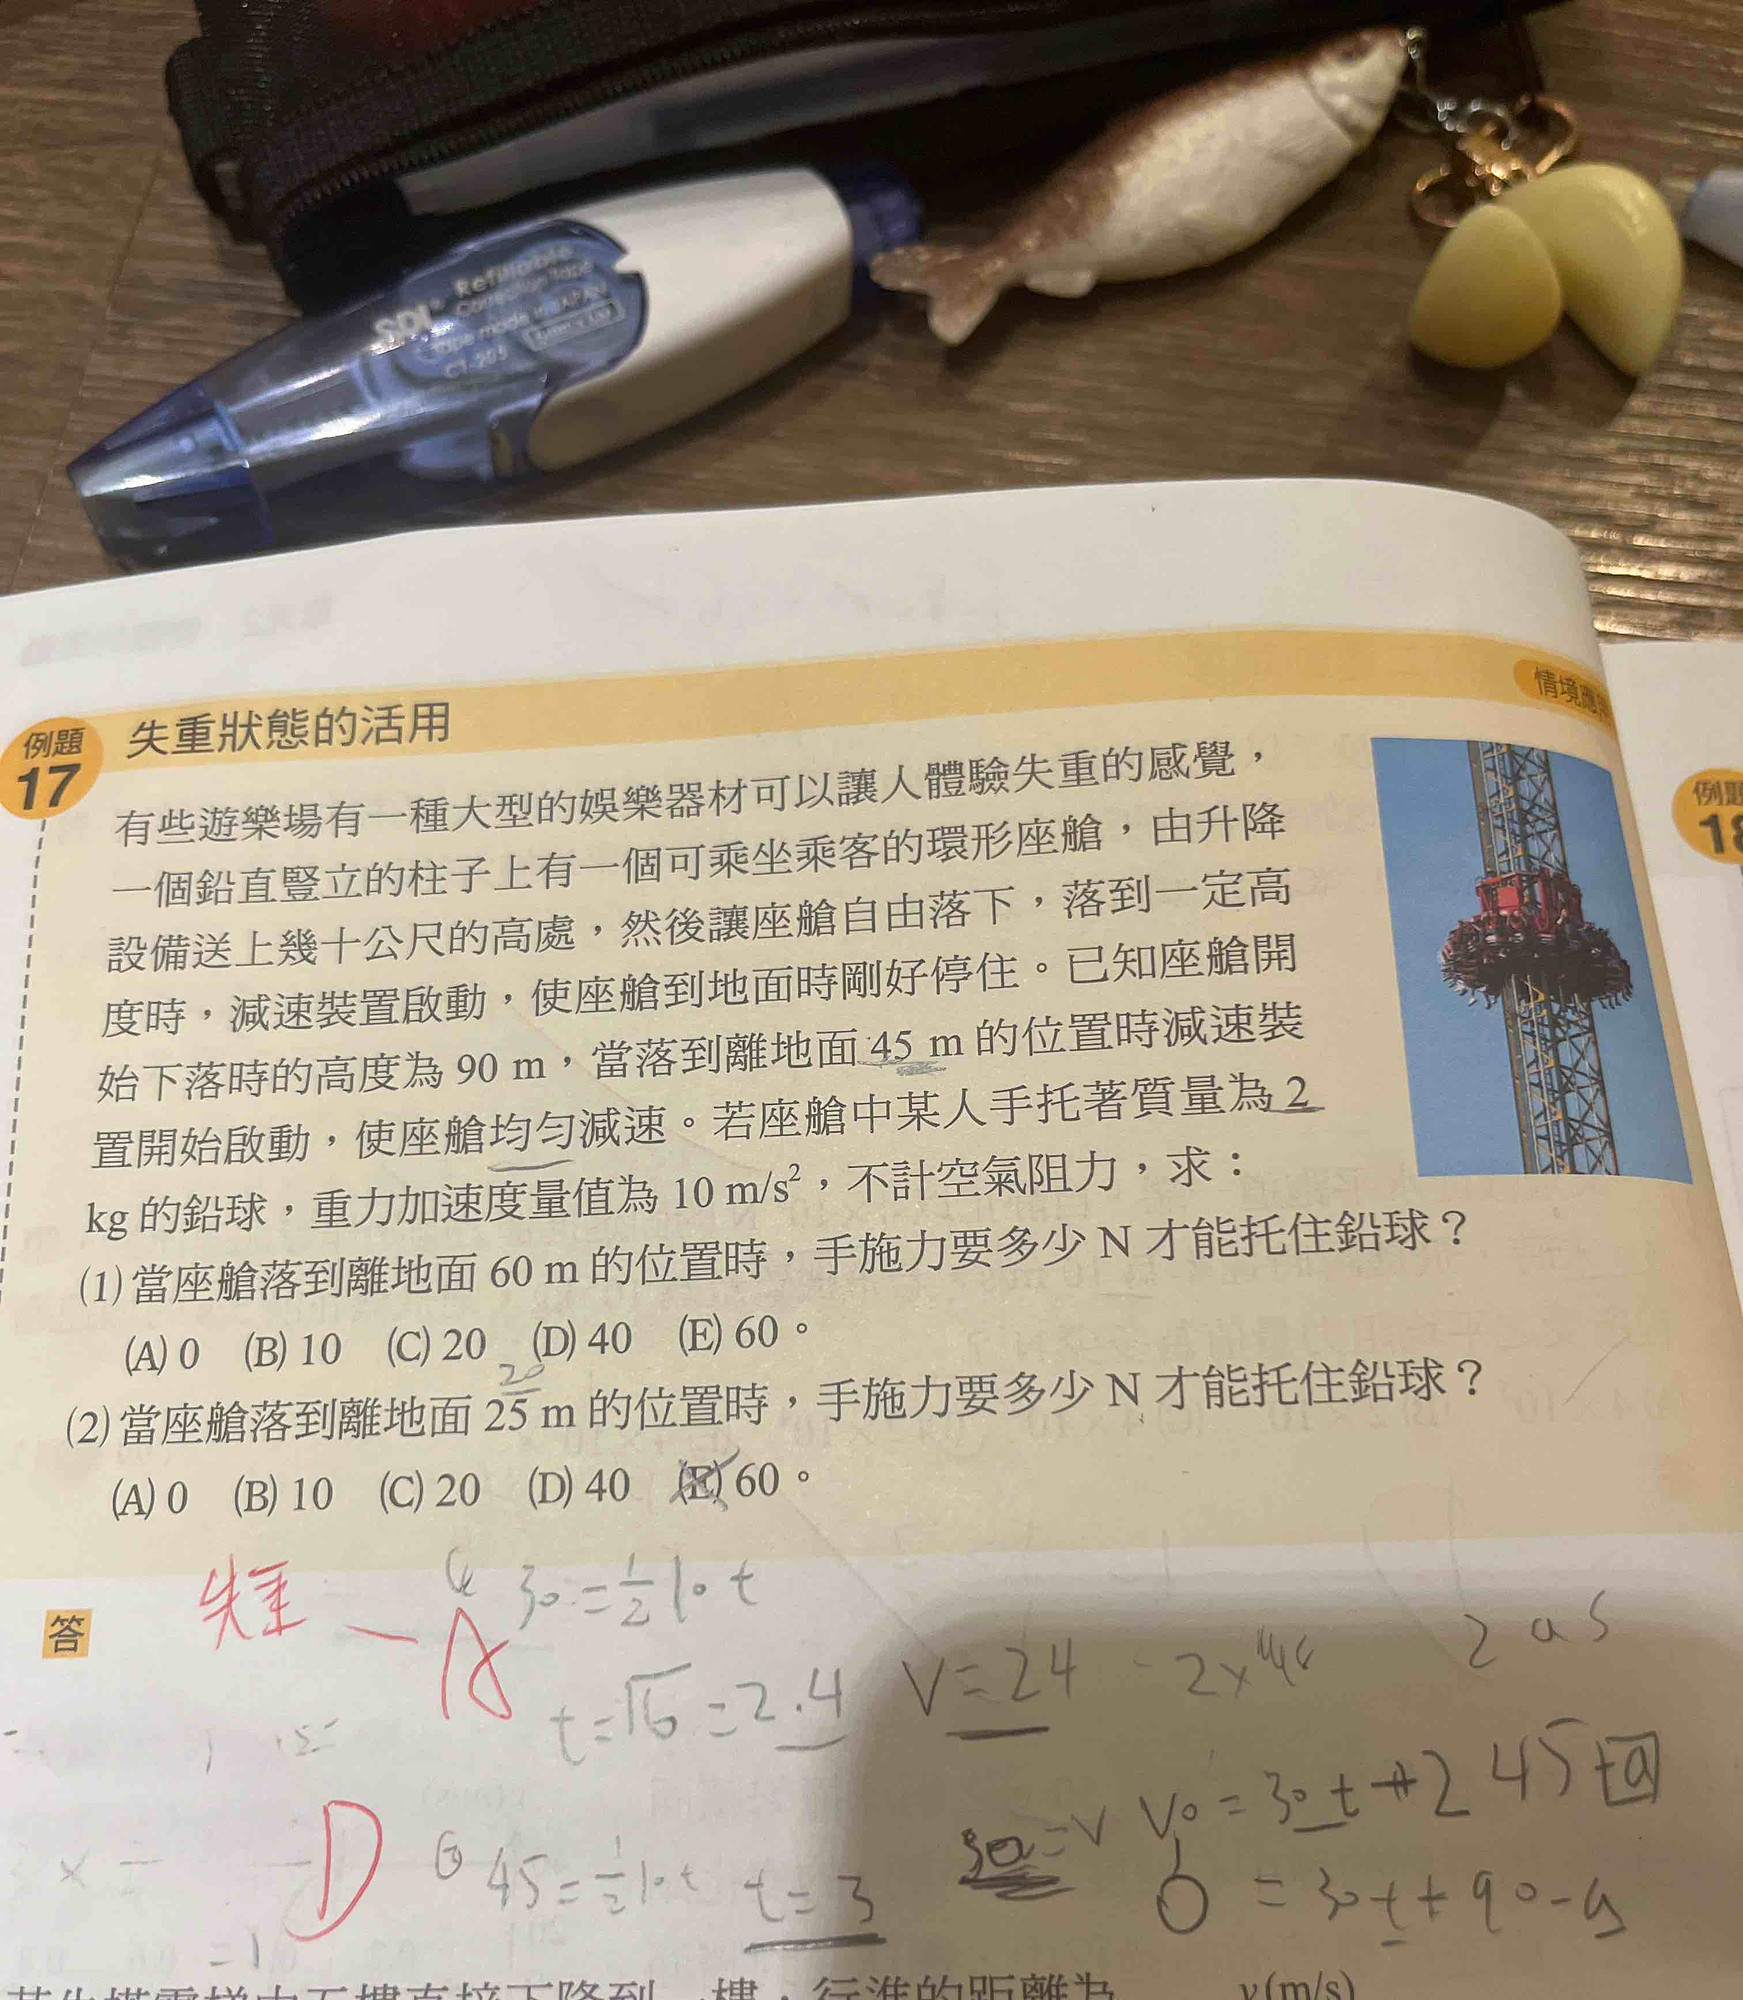 SDI® Refillable
Correction Tape
Tape made in JAPAN
CT-205
失重狀態的活用
情境應
例題
17
例題
18
有些遊樂場有一種大型的娛樂器材可以讓人體驗失重的感覺，
一個鉛直豎立的柱子上有一個可乘坐乘客的環形座艙，由升降
設備送上幾十公尺的高處，然後讓座艙自由落下，落到一定高
度時，減速裝置啟動，使座艙到地面時剛好停住。已知座艙開
始下落時的高度為 90 m，當落到離地面 45 m 的位置時減速裝
置開始啟動，使座艙均勻減速。若座艙中某人手托著質量為 2
kg 的鉛球，重力加速度量值為 10 m/s²，不計空氣阻力，求：
(1) 當座艙落到離地面 60 m 的位置時，手施力要多少 N 才能托住鉛球？
(A) 0 (B) 10 (C) 20 (D) 40 (E) 60。
20
(2) 當座艙落到離地面 25 m 的位置時，手施力要多少 N 才能托住鉛球？
(A) 0 (B) 10 (C) 20 (D) 40 (E) 60。
答
失重 — A
30 = 1/2 10 t
t = √6 = 2.4 V = 24
2 a s
D
45 = 1/2 10 t t = 3
V0 = 30 t + 2 45 t a
= 30 t + 90 - a
某生搭電梯由五樓直接下降到一樓，行進的距離為
v(m/s)